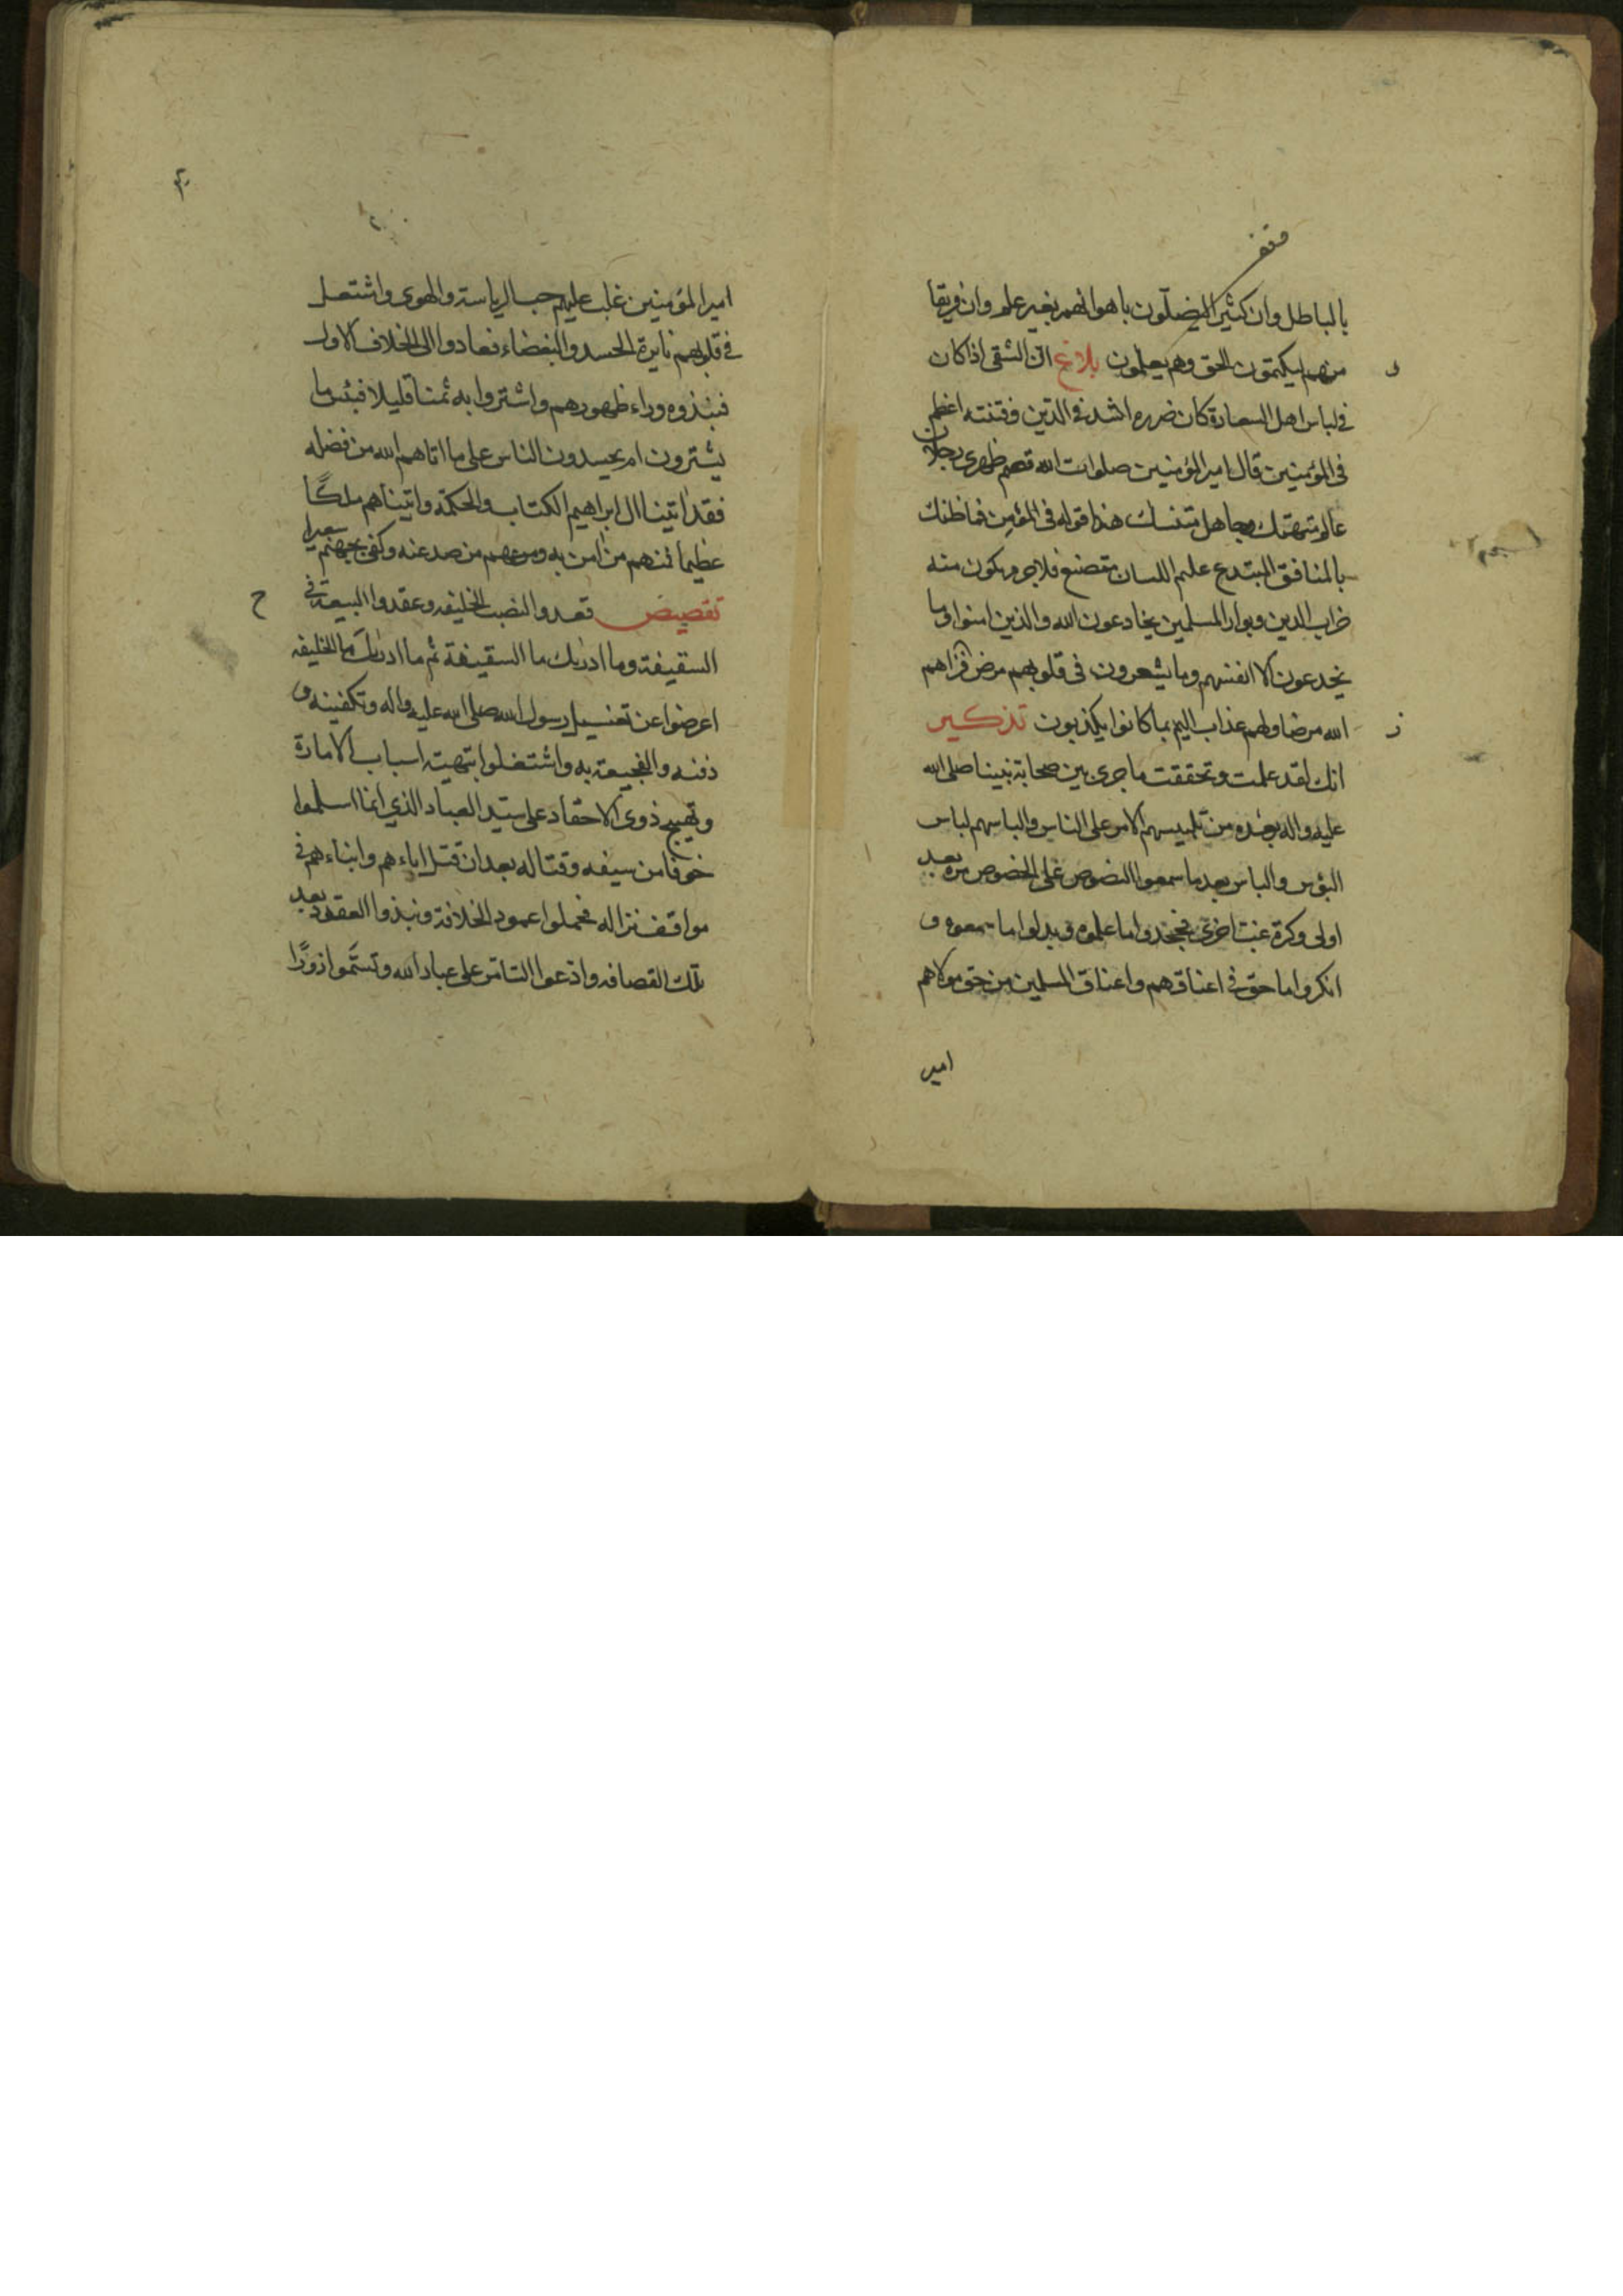 بالباطل وان كثيرا ليضلون باهوائهم بغير علم وان فريقا
منهم ليكتمون الحق وهم يعلمون بلاغ ان الشقي اذا كان
في لباس اهل السعادة كان ضرره اشد في الدين وفتنته اعظم
في المؤمنين قال امير المؤمنين صلوات الله قصم ظهري رجلان
عالم متهتك وجاهل متنسك هذا قوله في المؤمن فما ظنك
بالمنافق المبتدع عليم اللسان متصنع فلا جرم يكون منه
خراب الدين وبوار المسلمين يخادعون الله والذين امنوا وما
يخدعون الا انفسهم وما يشعرون في قلوبهم مرض فزادهم
الله مرضا ولهم عذاب اليم بما كانوا يكذبون تذكير
انك لقد علمت وتحققت ما جرى بين صحابة نبينا صلى الله
عليه واله بعده من تلبيسهم الامر على الناس والباسهم لباس
البؤس والباس بعد ما سمعوا النصوص على الخصوص مرة بعد
اولى وكرة غب اخرى فجحدوا ما علموه وبدلوا ما سمعوه و
انكروا ما حق في اعناقهم واعناق المسلمين من حق مولاهم
امير
امير المؤمنين غلب عليهم حب الرياسة والهوى واشتعل
في قلوبهم نايرة الحسد والبغضاء فعادوا الى الخلاف الاول
فنبذوه وراء ظهورهم واشتروا به ثمنا قليلا فبئس ما
يشترون ام يحسدون الناس على ما اتاهم الله من فضله
فقد اتينا ال ابراهيم الكتاب والحكمة واتيناهم ملكًا
عظيما فمنهم من امن به ومنهم من صد عنه وكفى بجهنم سعيرا
تقصيص قعدوا لنصب الخليفه وعقدوا البيعة في
السقيفة وما ادريك ما السقيفة ثم ما ادريك ما الخليفه
اعرضوا عن تغسيل رسول الله صلى الله عليه واله وتكفينه و
دفنه والفجيعة به واشتغلوا بتهيئة اسباب الامارة
وتهييج ذوي الاحقاد على سيد العباد الذي انما اسلموا
خوفا من سيفه وقتاله بعد ان قتل اباءهم وابناءهم في
مواقف نزاله فحملوا عمود الخلافة ونبذوا العقود بعد
تلك القصافه وادعوا التامر على عباد الله وتسموا زورًا